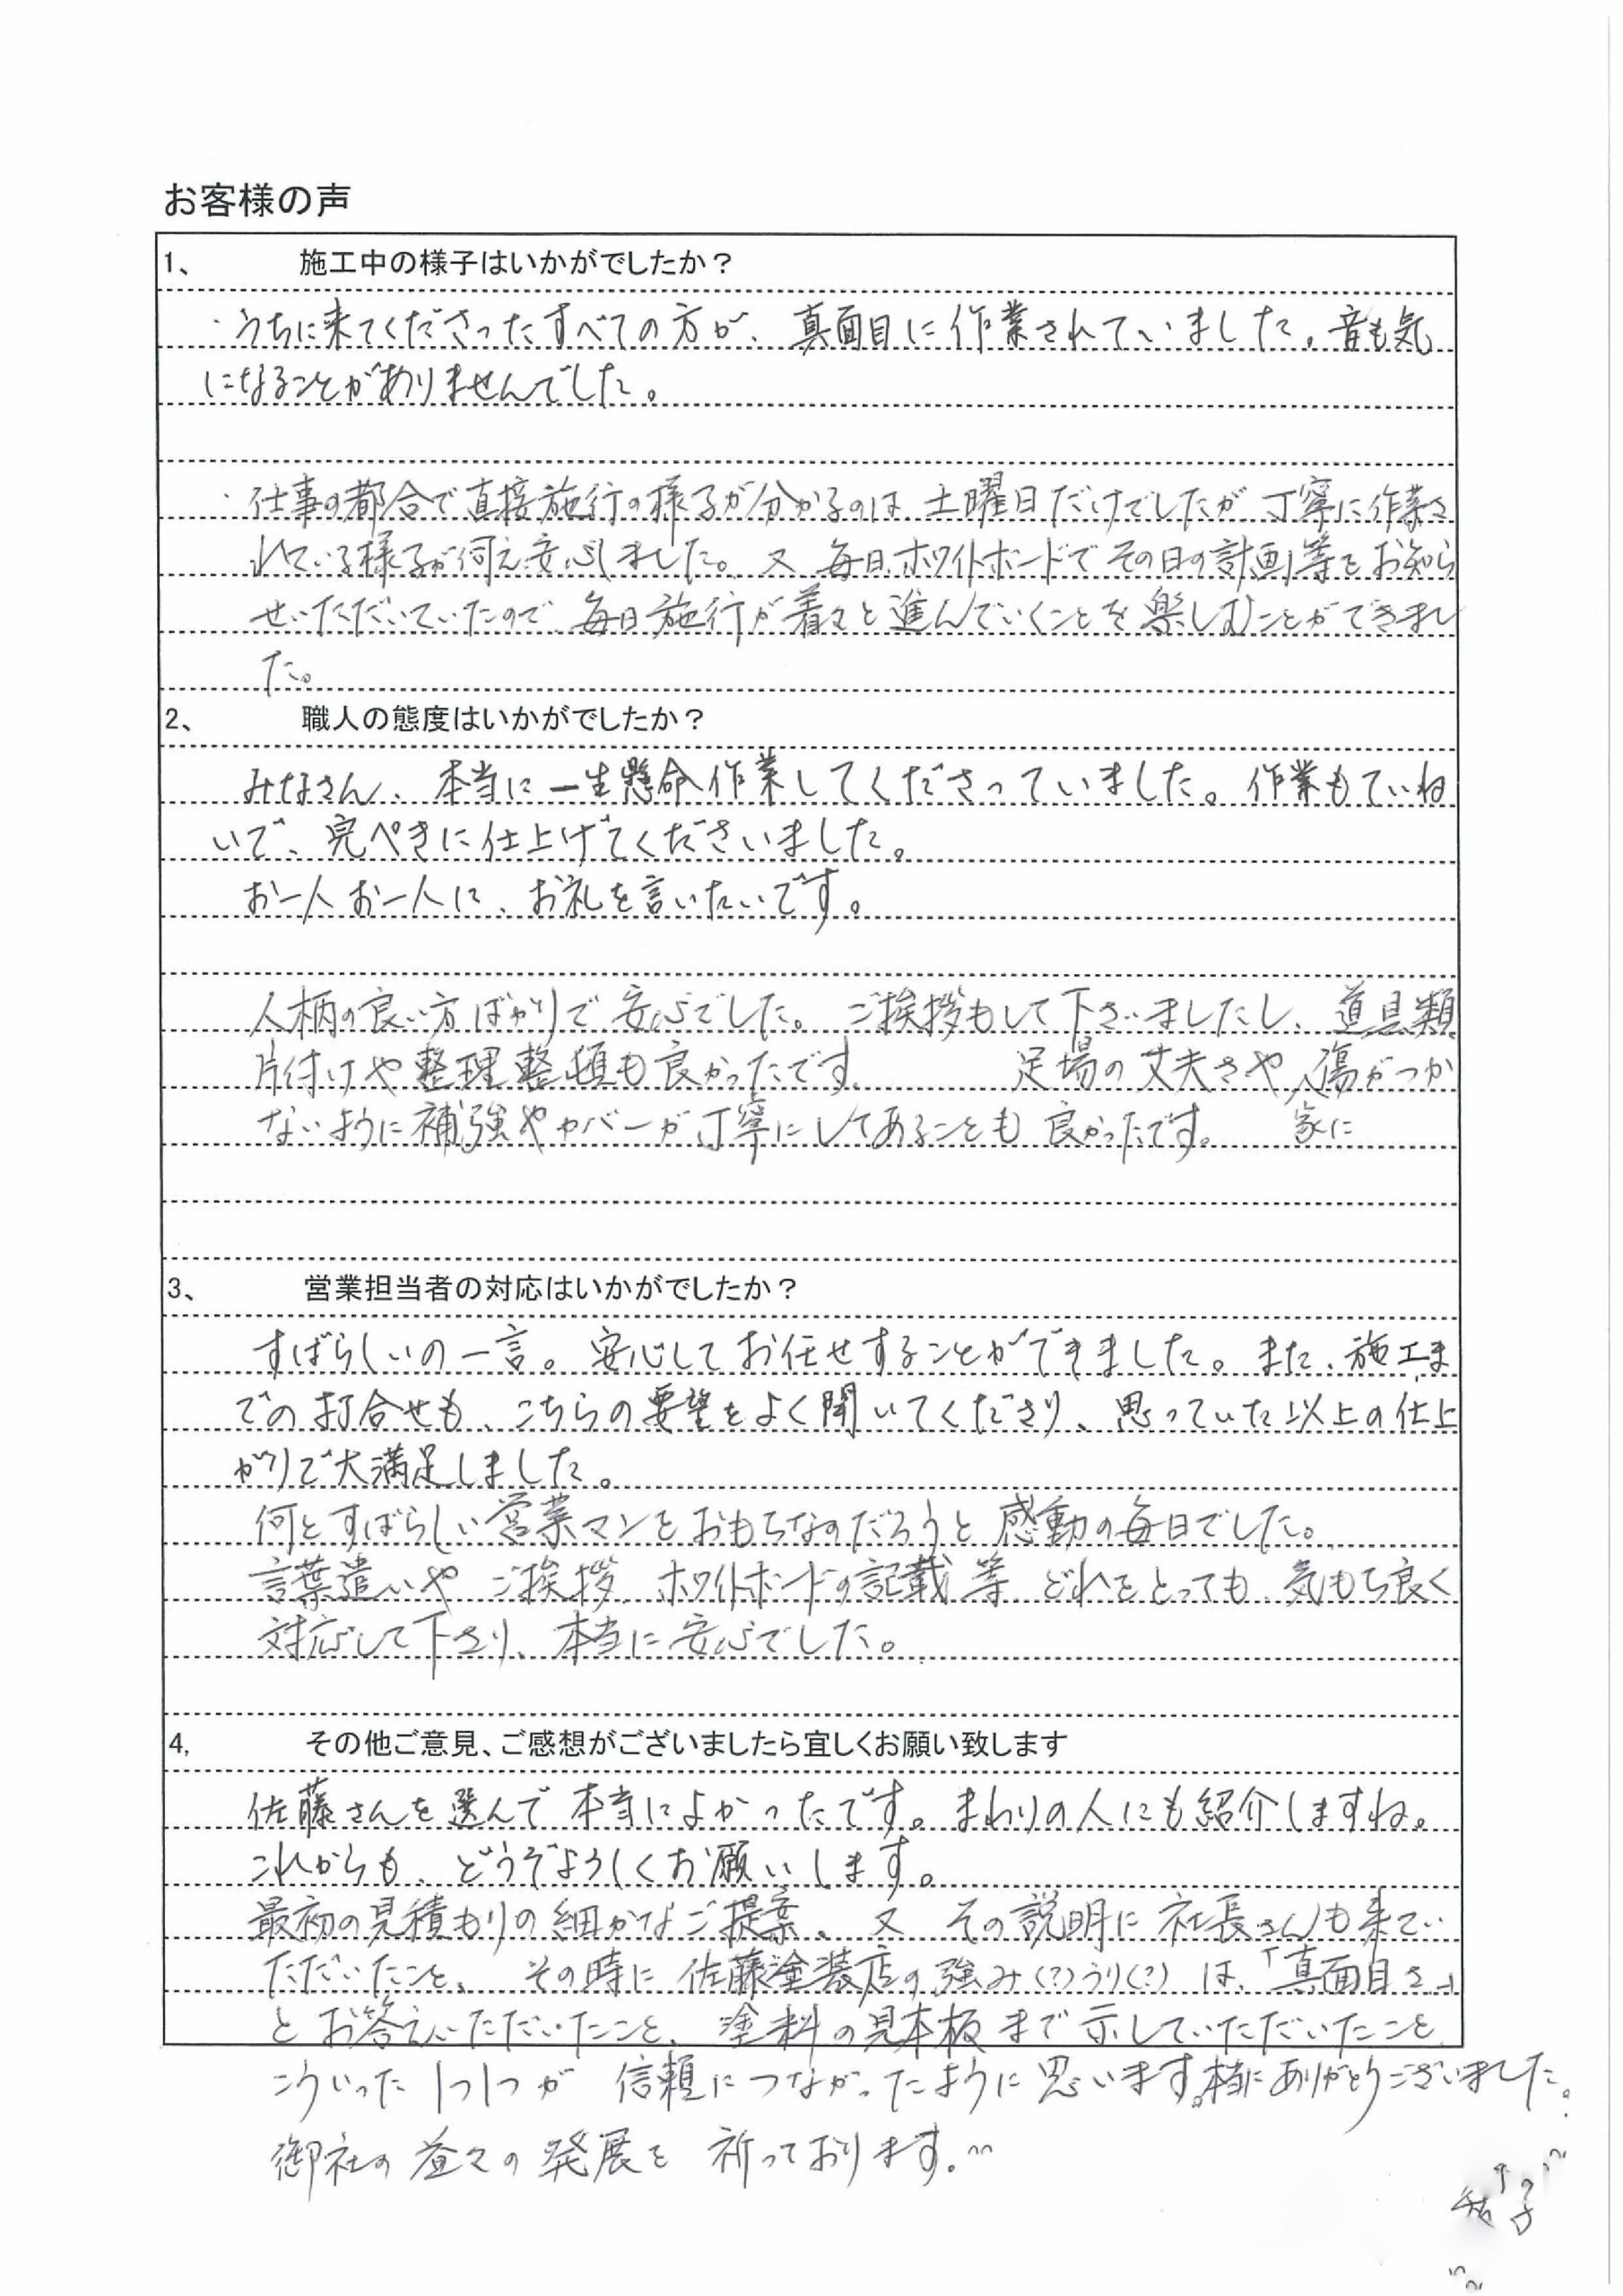 お客様の声
1、 施工中の様子はいかがでしたか？
・うちに来てくださったすべての方が、真面目に作業されていました。音も気
になることがありませんでした。
・仕事の都合で直接施行の様子が分かるのは、土曜日だけでしたが丁寧に作業さ
れている様子が伺え安心しました。又、毎日ホワイトボードでその日の計画等をお知ら
せいただいていたので、毎日施行が着々と進んでいくことを楽しむことができまし
た。
2、 職人の態度はいかがでしたか？
みなさん、本当に一生懸命作業してくださっていました。作業もていね
いで、完ぺきに仕上げてくださいました。
お一人お一人に、お礼を言いたいです。
人柄の良い方ばかりで安心でした。ご挨拶もして下さいましたし、道具類
片付けや整理整頓も良かったです。 足場の丈夫さや傷がつか
ないように補強やカバーが丁寧にしてあることも良かったです。 家に
3、 営業担当者の対応はいかがでしたか？
すばらしいの一言。安心してお任せすることができました。また、施工ま
での打合せも、こちらの要望をよく聞いてくださり、思っていた以上の仕上
がりで大満足しました。
何とすばらしい営業マンをおもちなのだろうと感動の毎日でした。
言葉遣いやご挨拶、ホワイトボードの記載等、どれをとっても、気もち良く
対応して下さり、本当に安心でした。
4, その他ご意見、ご感想がございましたら宜しくお願い致します
佐藤さんを選んで本当によかったです。まわりの人にも紹介しますね。
これからも、どうぞよろしくお願いします。
最初の見積もりの細かなご提案、又その説明に社長さんも来てい
ただいたこと、その時に佐藤塗装店の強み(?)うり(?)は、「真面目さ」
とお答えいただいたこと、塗料の見本板まで示していただいたこと、
こういった1つ1つが信頼につながったように思います。本当にありがとうございました。
御社の益々の発展を祈っております。